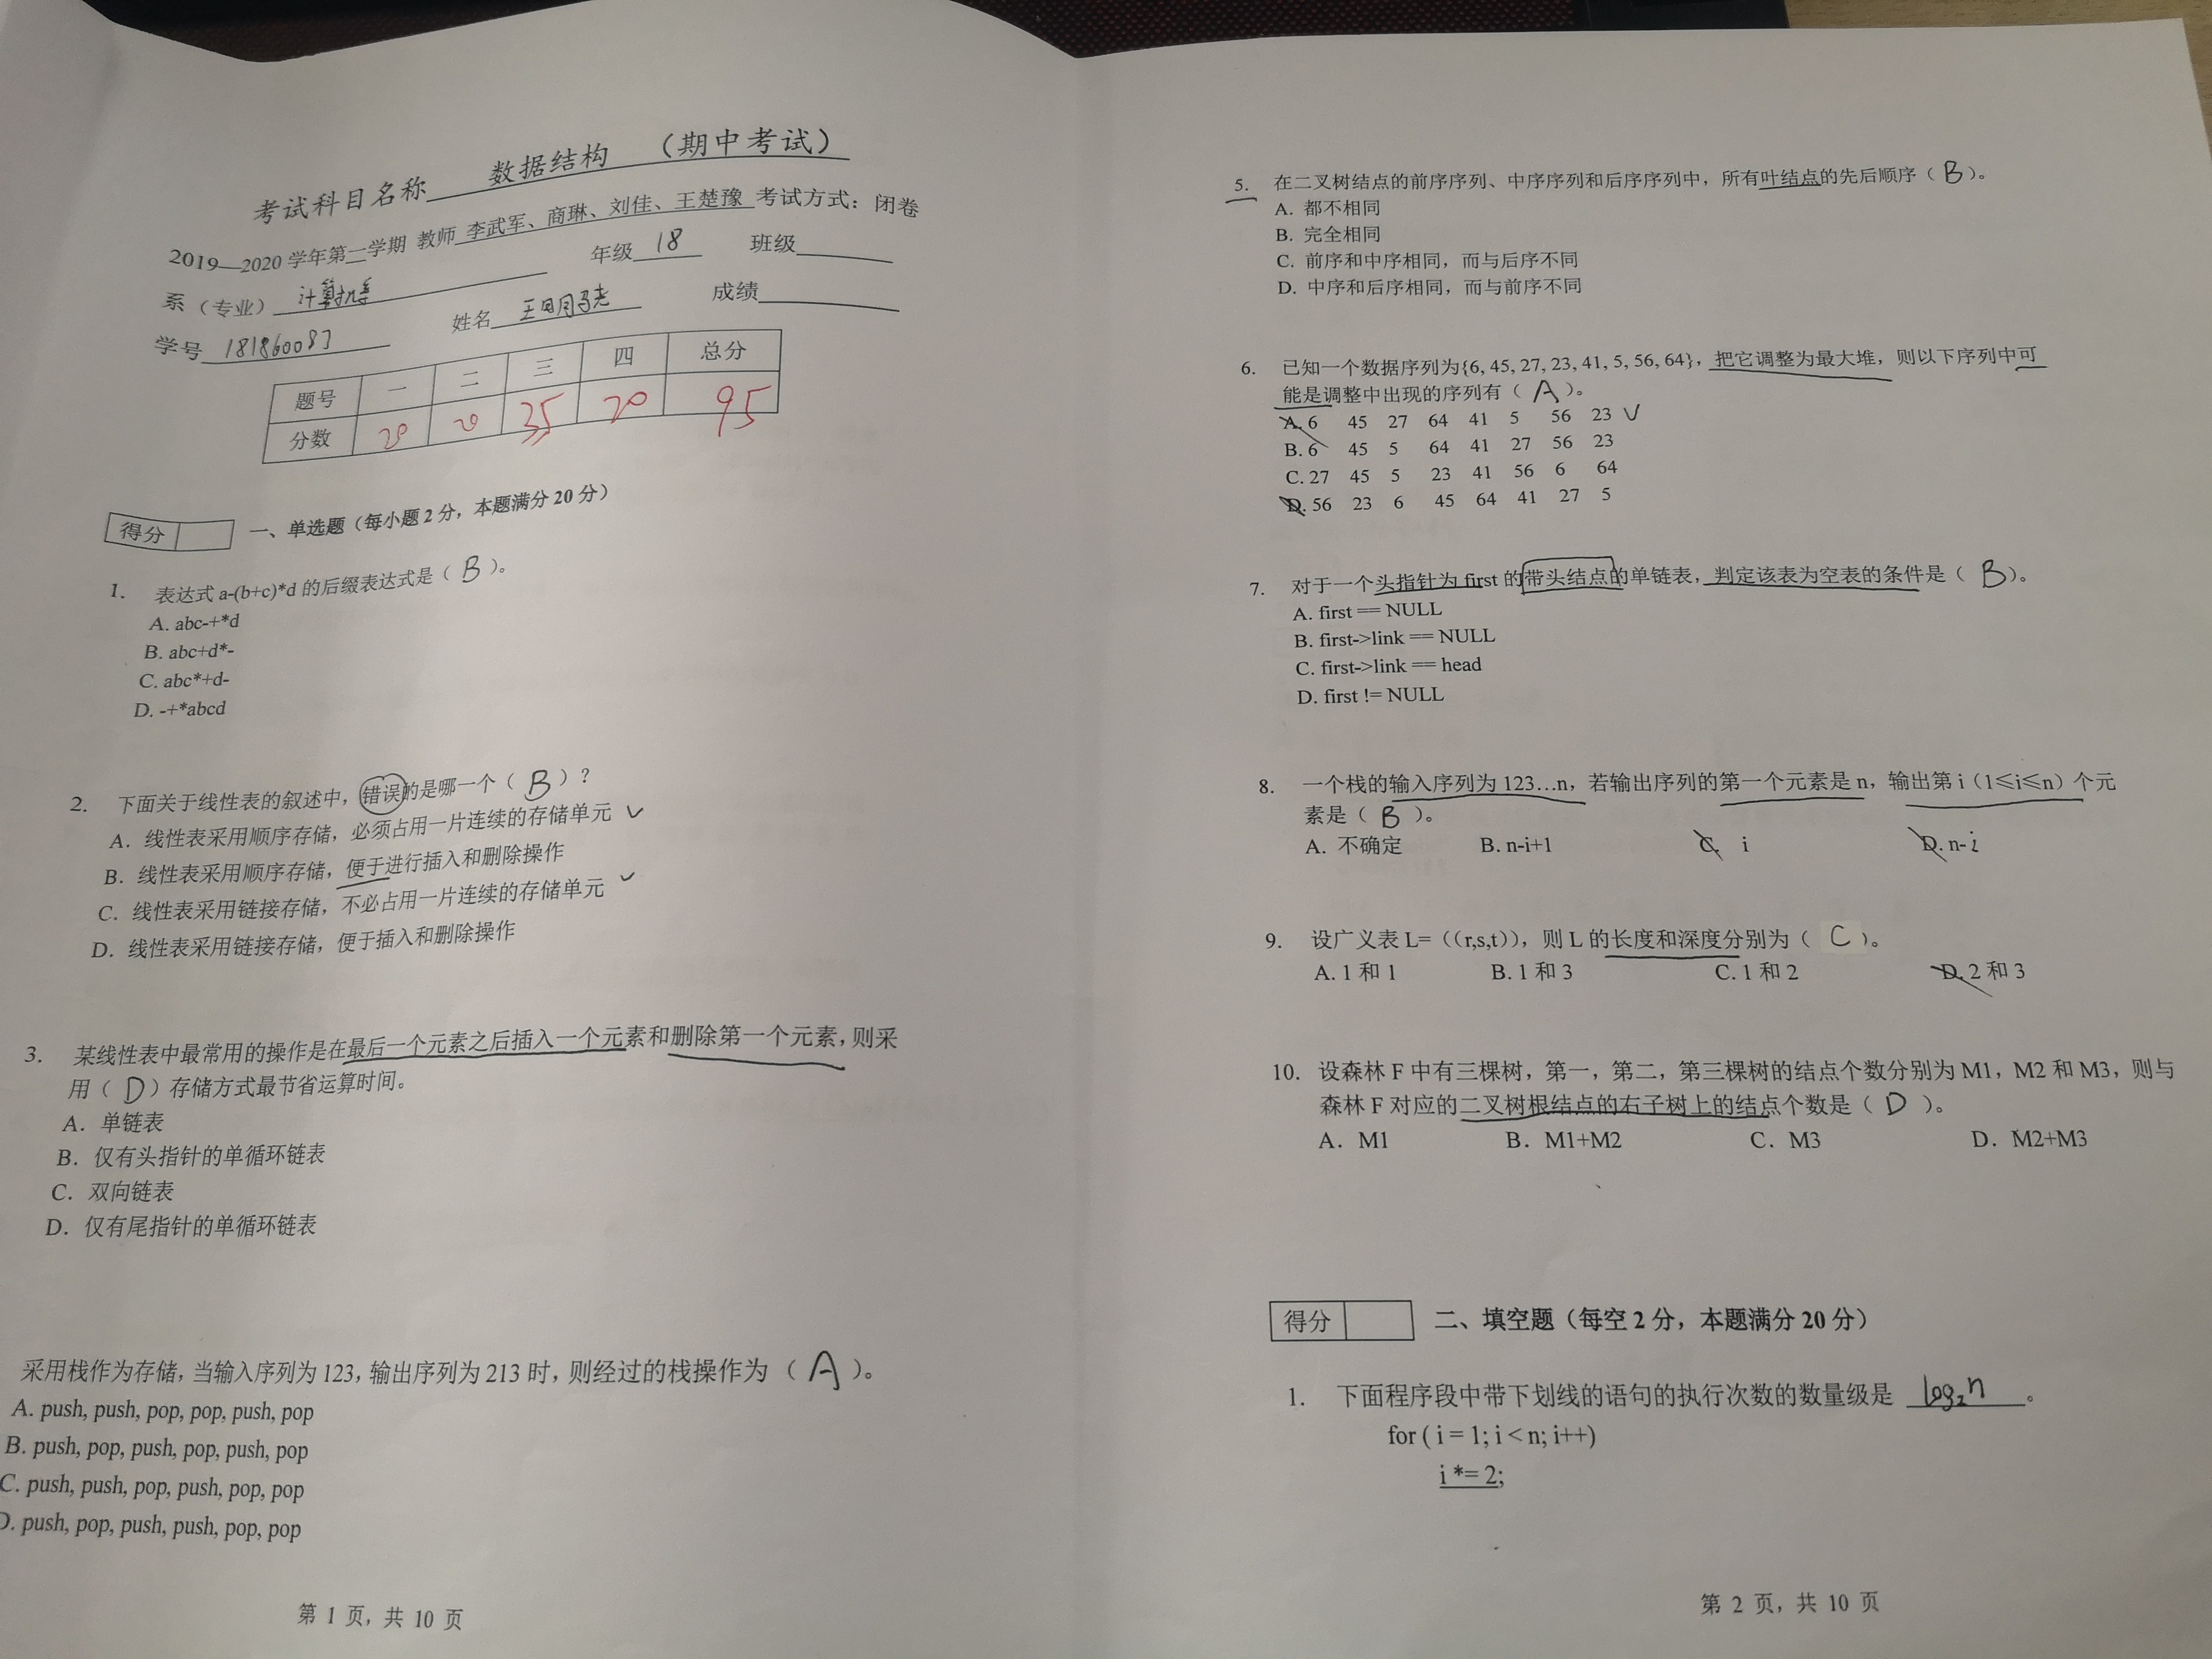 考试科目名称 数据结构 （期中考试）
2019—2020 学年第一学期 教师 李武军、商琳、刘佳、王楚豫 考试方式：闭卷
系（专业） 计算机系 年级 18 班级
学号 181860087 姓名 成绩
题号 一 二 三 四 总分
分数 20 20 35 20 95
得分 一、单选题（每小题 2 分，本题满分 20 分）
1. 表达式 a-(b+c)*d 的后缀表达式是（ B ）。
A. abc-+*d
B. abc+d*-
C. abc*+d-
D. -+*abcd
2. 下面关于线性表的叙述中，错误的是哪一个（ B ）？
A．线性表采用顺序存储，必须占用一片连续的存储单元 ✓
B．线性表采用顺序存储，便于进行插入和删除操作
C．线性表采用链接存储，不必占用一片连续的存储单元 ✓
D．线性表采用链接存储，便于插入和删除操作
3. 某线性表中最常用的操作是在最后一个元素之后插入一个元素和删除第一个元素，则采
用（ D ）存储方式最节省运算时间。
A．单链表
B．仅有头指针的单循环链表
C．双向链表
D．仅有尾指针的单循环链表
采用栈作为存储，当输入序列为 123，输出序列为 213 时，则经过的栈操作为（ A ）。
A. push, push, pop, pop, push, pop
B. push, pop, push, pop, push, pop
C. push, push, pop, push, pop, pop
D. push, pop, push, push, pop, pop
第 1 页，共 10 页
5. 在二叉树结点的前序序列、中序序列和后序序列中，所有叶结点的先后顺序（ B ）。
A. 都不相同
B. 完全相同
C. 前序和中序相同，而与后序不同
D. 中序和后序相同，而与前序不同
6. 已知一个数据序列为{6, 45, 27, 23, 41, 5, 56, 64}，把它调整为最大堆，则以下序列中可
能是调整中出现的序列有（ A ）。
A. 6 45 27 64 41 5 56 23 ✓
B. 6 45 5 64 41 27 56 23
C. 27 45 5 23 41 56 6 64
D. 56 23 6 45 64 41 27 5
7. 对于一个头指针为 first 的带头结点的单链表，判定该表为空表的条件是（ B ）。
A. first == NULL
B. first->link == NULL
C. first->link == head
D. first != NULL
8. 一个栈的输入序列为 123…n，若输出序列的第一个元素是 n，输出第 i（1≤i≤n）个元
素是（ B ）。
A. 不确定 B. n-i+1 C. i D. n-i
9. 设广义表 L=（（r,s,t）），则 L 的长度和深度分别为（ C ）。
A. 1 和 1 B. 1 和 3 C. 1 和 2 D. 2 和 3
10. 设森林 F 中有三棵树，第一，第二，第三棵树的结点个数分别为 M1，M2 和 M3，则与
森林 F 对应的二叉树根结点的右子树上的结点个数是（ D ）。
A．M1 B．M1+M2 C．M3 D．M2+M3
得分 二、填空题（每空 2 分，本题满分 20 分）
1. 下面程序段中带下划线的语句的执行次数的数量级是 log₂n 。
for ( i = 1; i < n; i++)
i *= 2;
第 2 页，共 10 页